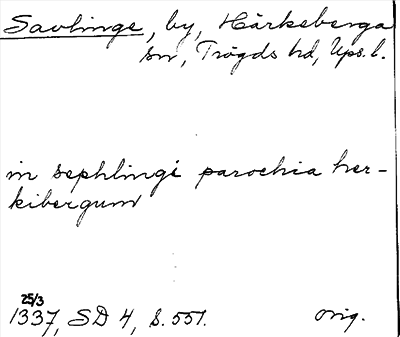 Savlinge, by, Härkeberga
sn, Trögds hd, Ups. l.
in sephlingi parochia her-
kibergum
25/3
1337, SD 4, s. 551.
orig.